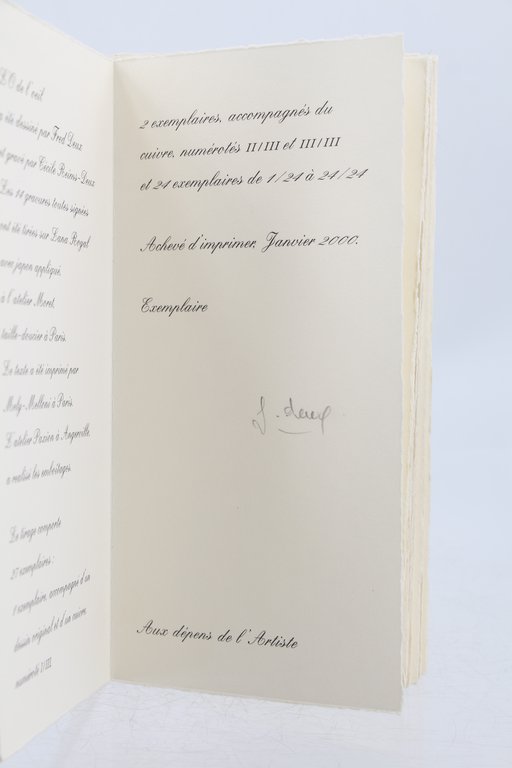 L'O de l'œil
a été dessiné par Fred Deux
et gravé par Cécile Reims-Deux
Les 14 gravures toutes signées
ont été tirées sur Lana Royal
avec japon appliqué,
à l'atelier Moret,
taille-doucier à Paris.
Le texte a été imprimé par
à Paris.
L'atelier à Angerville,
a réalisé les emboîtages.
Le tirage comporte
27 exemplaires :
1 exemplaire, accompagné d'un
dessin original et d'un cuivre
numéroté I/III
2 exemplaires, accompagnés du
cuivre, numérotés II/III et III/III
et 24 exemplaires de 1/24 à 24/24
Achevé d'imprimer, Janvier 2000.
Exemplaire
f. deux
Aux dépens de l'Artiste